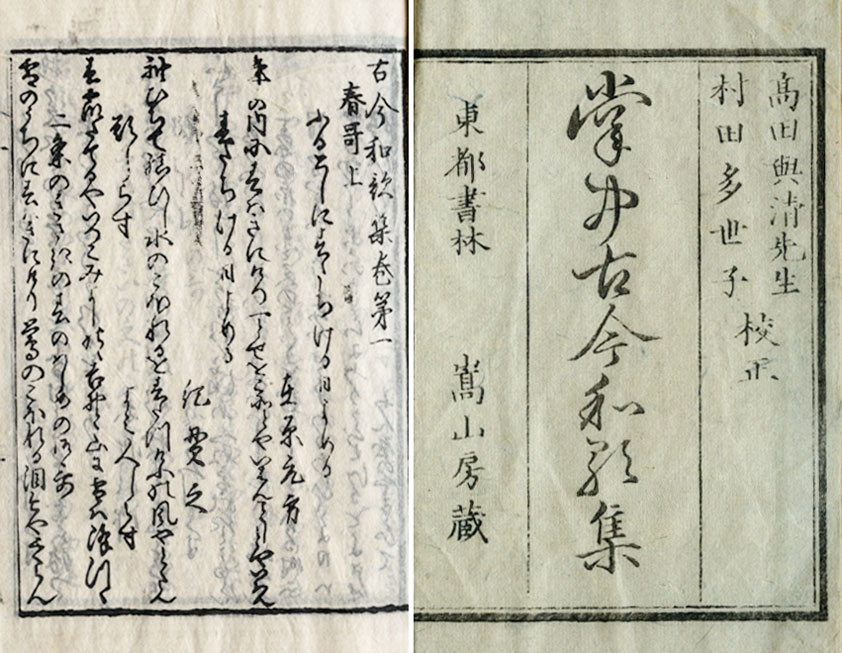 高田與清先生
村田多世子 校正
掌中古今和歌集
東都書林 嵩山房蔵
古今和歌集巻第一
春哥上
ふるとしに春たちける日よめる
在原元方
年の内に春はきにけり一とせをこそとやいはんことしとやいはん
春たちける日よめる
紀貫之
袖ひちて結ひし水のこほれるを春立けふの風やとくらん
題しらす よみ人しらす
春霞たてるやいつこみよしのゝ吉野ゝ山に雪は降つゝ
二条のきさきの春のはしめの御哥
雪のうちに春はきにけり鶯のこほれる泪今やとくらん